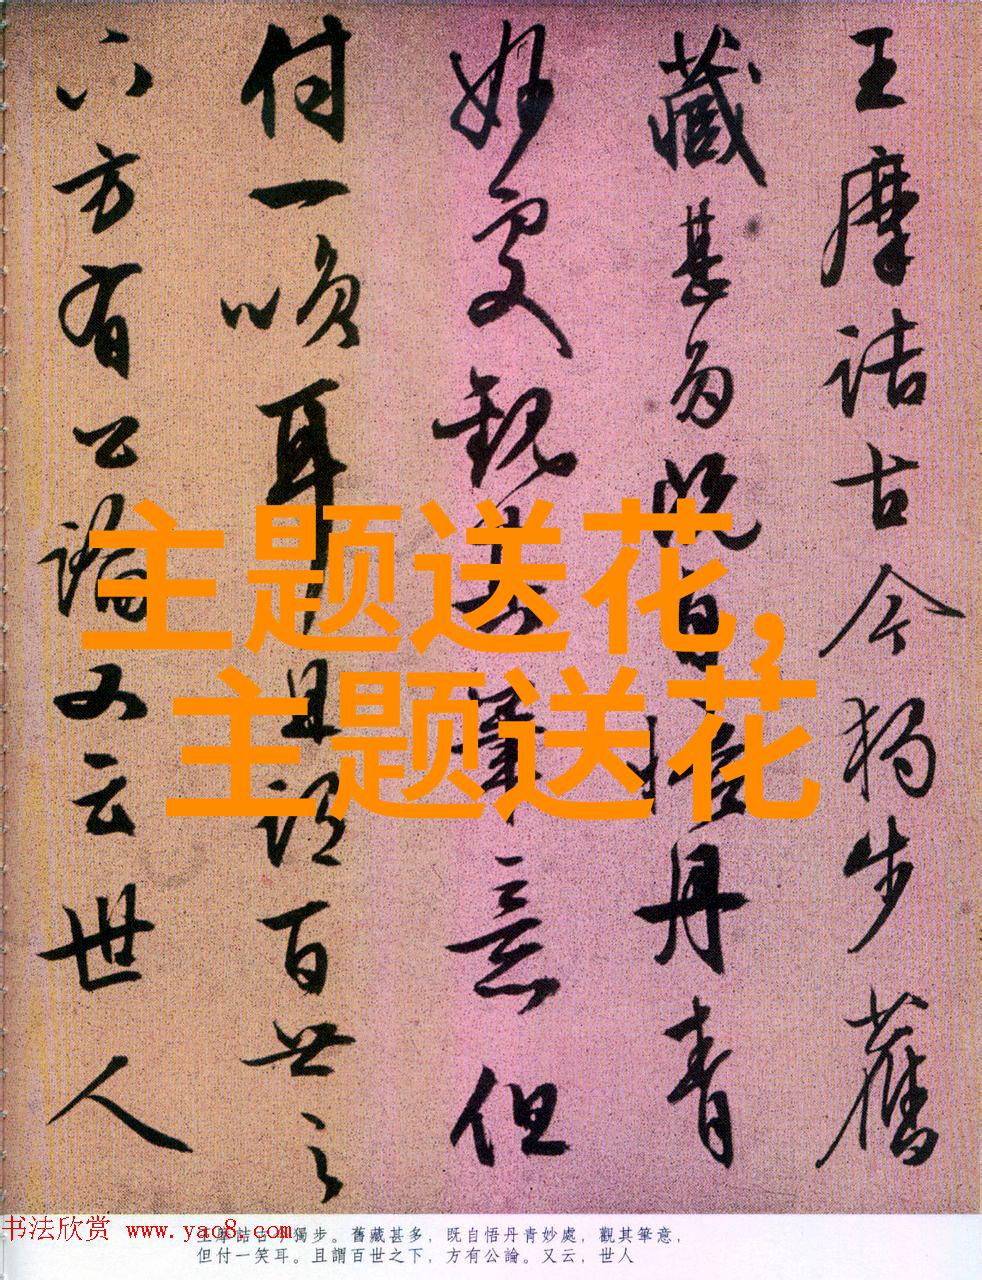 王摩詰古今獨步舊
藏甚多既自悟丹青
妙處觀其筆意但
付一笑耳且謂百世之
下方有公論又云世人
主题送花,
主题送花
书法欣赏 www.yac8.com
王摩詰古今獨步。舊藏甚多，既自悟丹青妙處，觀其筆意，
但付一笑耳。且謂百世之下，方有公論。又云，世人